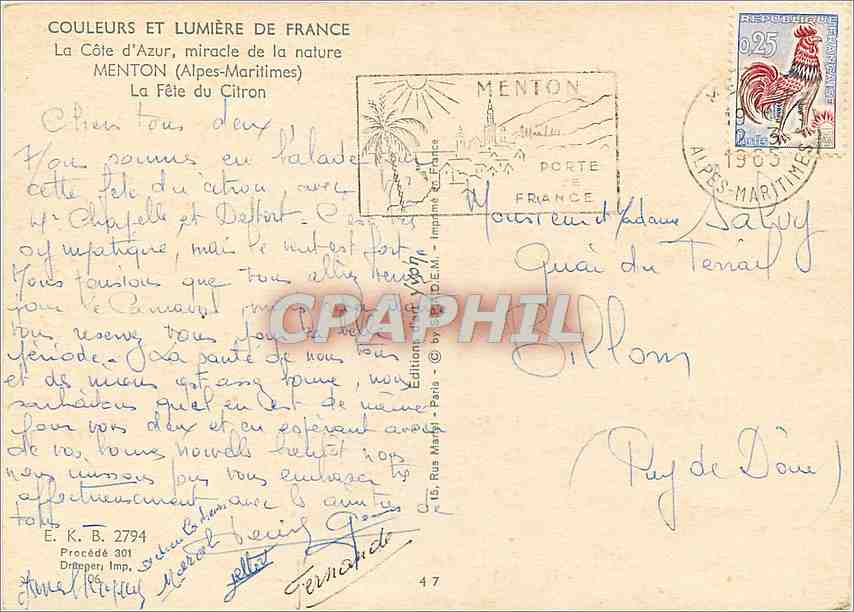 COULEURS ET LUMIÈRE DE FRANCE
La Côte d'Azur, miracle de la nature
MENTON (Alpes-Maritimes)
La Fête du Citron
Chers tous deux,
Nous sommes en balade pour
cette fête du citron, avec
Mr Chapelle et Deffort. C'est très
sympatique, mais le vent est fort
Nous pensions que vous alliez venir
pour le Carnaval, mais
vous reservez vous pour la belle
période. La santé de nous tous
et des miens est assez bonne, nous
souhaitons qu'il en est de même
pour vous deux et en espérant avoir
de vos bonnes nouvelles bientôt nous
nous unissons pour vous embrasser
affectueusement avec les amitiés de
tous
Marcel
Fernande
E. K. B. 2794
Procédé 301
Draeger, Imp.
47
Editions d'art Yvon
15, Rus Martel - Paris - © by S.P.A.D.E.M. - Imprimé en France
MENTON
PORTE
DE
FRANCE
1963
ALPES-MARITIMES
REPUBLIQUE
FRANÇAISE
0,25
Monsieur et Madame Salvy
Quai du Terrail
Billom
(Puy de Dôme)
CPAPHIL